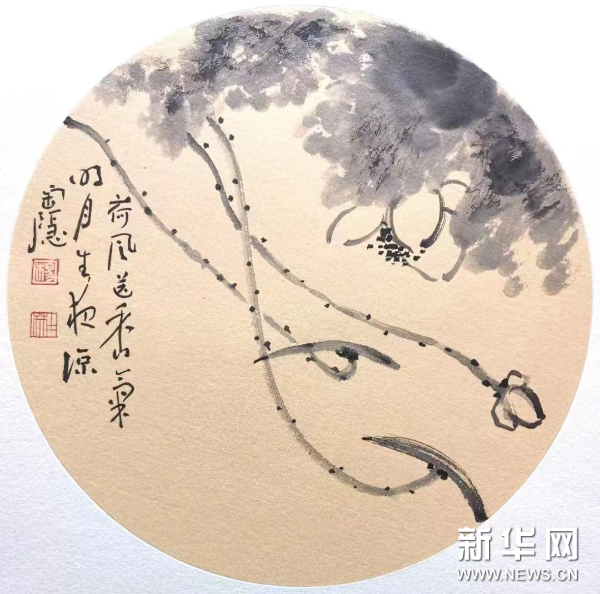 荷风送香氣
明月生夜凉
新华网
WWW.NEWS.CN